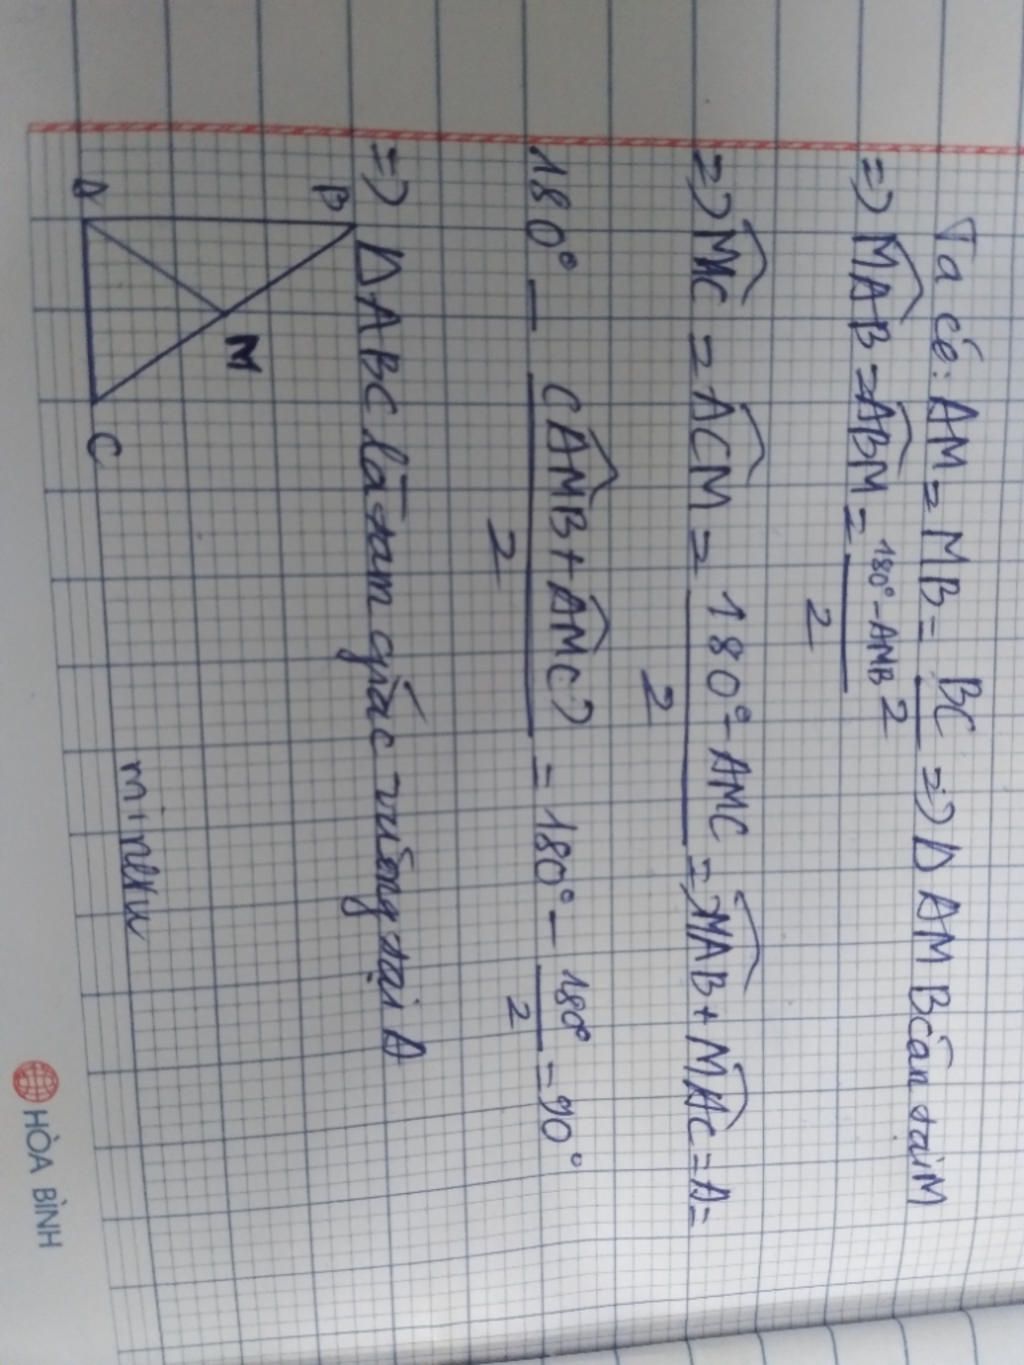 Ta có: AM = MB = BC/2 => Δ AMB cân tại M
=> MAB = ABM = 180° - AMB / 2
=> MC = ACM = 180° - AMC / 2 => MAB + MAC = A =
180° - (AMB + AMC) / 2 = 180° - 180° / 2 = 90°
=> Δ ABC là tam giác vuông tại A
B
A
M
C
HÒA BÌNH